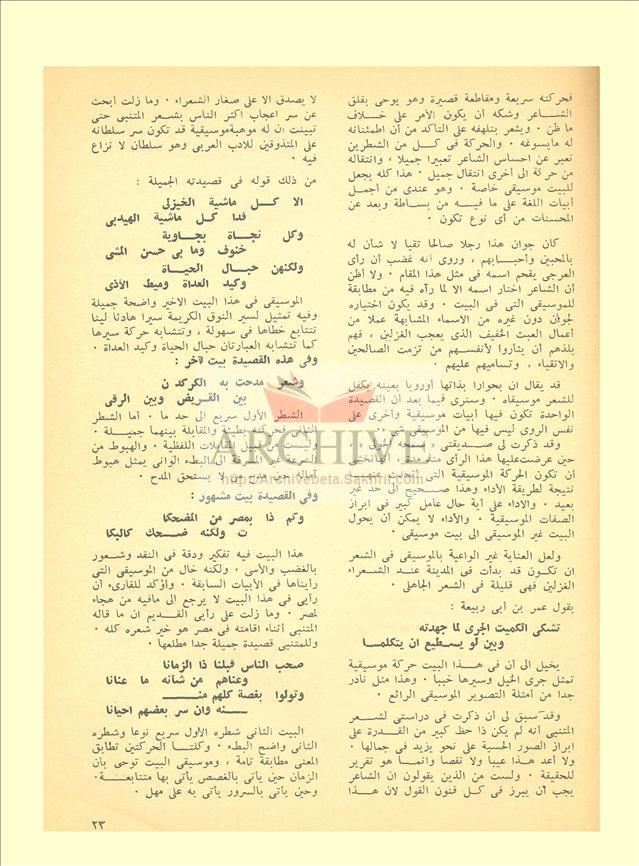 فحركته سريعة ومقاطعة قصيرة وهو يوحى بقلق
الشاعر وشكه أن يكون الأمر على خلاف
ما ظن ٠ ويشعر بتلهفه على التأكد من أن اطمئنانه
له مايسوغه ٠ والحركة فى كل من الشطرين
تعبر عن احساس الشاعر تعبيرا جميلا ، وانتقاله
من حركة الى أخرى انتقال جميل ٠ هذا كله يجعل
للبيت موسيقى خاصة ٠ وهو عندى من أجمل
أبيات اللغة على ما فيه من بساطة وبعد عن
المحسنات من أى نوع تكون ٠
كان جوان هذا رجلا صالحا تقيا لا شأن له
بالمحبين وأحبابهم ، وروى أنه غضب أن رأى
العرجى يقحم اسمه فى مثل هذا المقام ٠ ولا أظن
أن الشاعر اختار اسمه الا لما رآه فيه من مطابقة
للموسيقى التى فى البيت ٠ وقد يكون اختياره
لجوان دون غيره من الاسماء المشابهة عملا من
أعمال العبث الخفيف الذى يعجب الغزلين ، فهم
يلذهم أن يثأروا لأنفسهم من تزمت الصالحين
والاتقياء ، وتساميهم عليهم ٠
قد يقال ان بحورا بذاتها أوزونا بعينه تكفل
للشعر موسيقاه ٠ وسنرى فيما بعد أن القصيدة
الواحدة تكون فيها أبيات موسيقية وأخرى على
نفس الروى ليس فيها من الموسيقى شىء ٠
وقد ذكرت لى صديقتى
حين عرضت عليها هذا الرأى
أن تكون الحركة الموسيقية التى
نتيجة لطريقة الأداء وهذا صحيح الى حد غير
بعيد ٠ والاداء على أية حال عامل كبير فى ابراز
الصفات الموسيقية ٠ والأداء لا يمكن أن يحول
البيت غير الموسيقى الى بيت موسيقى ٠
ولعل العناية غير الواعية بالموسيقى فى الشعر
ان تكون قد بدأت فى المدينة عند الشعراء
الغزلين فهى قليلة فى الشعر الجاهلى ٠
يقول عمر بن أبى ربيعة :
تشكى الكميت الجرى لما جهدته
وبين لو يسطيع ان يتكلما
يخيل الى أن فى هذا البيت حركة موسيقية
تمثل جرى الخيل وسيرها خببا ٠ وهذا مثل نادر
جدا من أمثلة التصوير الموسيقى الرائع ٠
وقد سبق لى أن ذكرت فى دراستى لشعر
المتنبى أنه لم يكن ذا حظ كبير من القدرة على
ابراز الصور الحسية على نحو يزيد فى جمالها ٠
ولا أعد هذا عيبا ولا نقصا وانما هو تقرير
للحقيقة ٠ ولست من الذين يقولون ان الشاعر
يجب أن يبرز فى كل فنون القول لان هذا
لا يصدق الا على صغار الشعراء ٠ وما زلت أبحث
عن سر اعجاب أكثر الناس بشعر المتنبى حتى
تبينت ان له موهبة موسيقية قد تكون سر سلطانه
على المتذوقين للادب العربى وهو سلطان لا نزاع
فيه ٠
من ذلك قوله فى قصيدته الجميلة :
الا كل ماشية الخيزلى
فدا كل ماشية الهيدبى
وكل نجاة بجاوية
خنوف وما بى حسن المشى
ولكنهن حبال الحياة
وكيد العداة وميط الأذى
الموسيقى فى هذا البيت الاخير واضحة جميلة
وفيه تمثيل لسير النوق الكريمة سيرا هادئا لينا
تتتابع خطاها فى سهولة ، وتتشابه حركة سيرها
كما تتشابه العبارتان حبال الحياة وكيد العداة ٠
وفى هذه القصيدة بيت لآخر :
وشعر مدحت به الكركدن
بين القريض وبين الرقى
الشطر الأول سريع الى حد ما ٠ أما الشطر
الثانى فحركته بطيئة والمقابلة بينهما جميلة ٠
وليست من قبيل المقابلات اللفظية ٠ والهبوط من
السرعة غير المفرطة الى البطء الوانى يمثل هبوط
آماله حين مدح من لا يستحق المدح ٠
وفى القصيدة بيت مشهور :
وكم ذا بمصر من المضحكا
ت ولكنه ضحك كالبكا
هذا البيت فيه تفكير ودقة فى النقد وشعور
بالغضب والأسى ، ولكنه خال من الموسيقى التى
رأيناها فى الأبيات السابقة ٠ وأؤكد للقارىء أن
رأيى فى هذا البيت لا يرجع الى مافيه من هجاء
لمصر ٠ وما زلت على رأيى القديم ان ما قاله
المتنبى أثناء اقامته فى مصر هو خير شعره كله ٠
وللمتنبى قصيدة جميلة جدا مطلعها :
صحب الناس قبلنا ذا الزمانا
وعناهم من شأنه ما عنانا
وتولوا بغصة كلهم منـ
ـه وان سر بعضهم احيانا
البيت الثانى شطره الأول سريع نوعا وشطره
الثانى واضح البطء ٠ وكلتا الحركتين تطابق
المعنى مطابقة تامة ، وموسيقى البيت توحى بأن
الزمان حين يأتى بالغصص يأتى بها متتابعة ٠
وحين يأتى بالسرور يأتى به على مهل ٠
٢٣
ARCHIVE
http://Archivebeta.Sakhrit.com